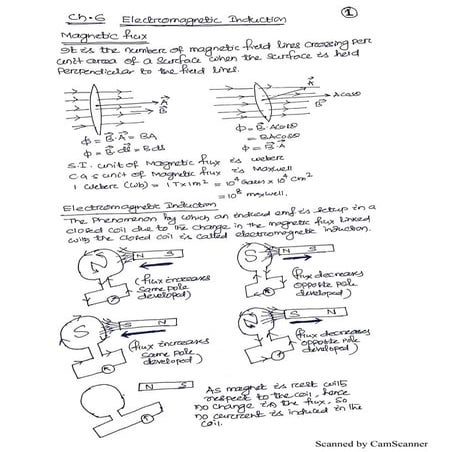 Ch. 6 Electromagnetic Induction ①
Magnetic flux
It is the number of magnetic field lines crossing per
unit area of a surface when the surface is held
perpendicular to the field lines.
A
B
A
B
A cosθ
ϕ = B⃗.A⃗ = BA
ϕ = B⃗.ds⃗ = Bds
ϕ = B. A cosθ
= BA cosθ
ϕ = B⃗.ds⃗
S.I. unit of Magnetic flux is weber
CGS unit of Magnetic flux is Maxwell
1 weber (wb) = 1T x 1m² = 10⁴ Gauss x 10⁴ cm²
= 10⁸ maxwell.
Electromagnetic Induction
The Phenomenon by which an induced emf is setup in a
closed coil due to the change in the magnetic flux linked
with the closed coil is called electromagnetic induction.
N N S
(flux increases
same pole
developed)
S N S
(flux decreases
opposite pole
developed)
S S N
(flux increases
same pole
developed)
N S N
(flux decreases
opposite pole
developed)
N S
As magnet is rest with
respect to the coil, hence
no change in the flux, so
no current is induced in the
coil.
Scanned by CamScanner